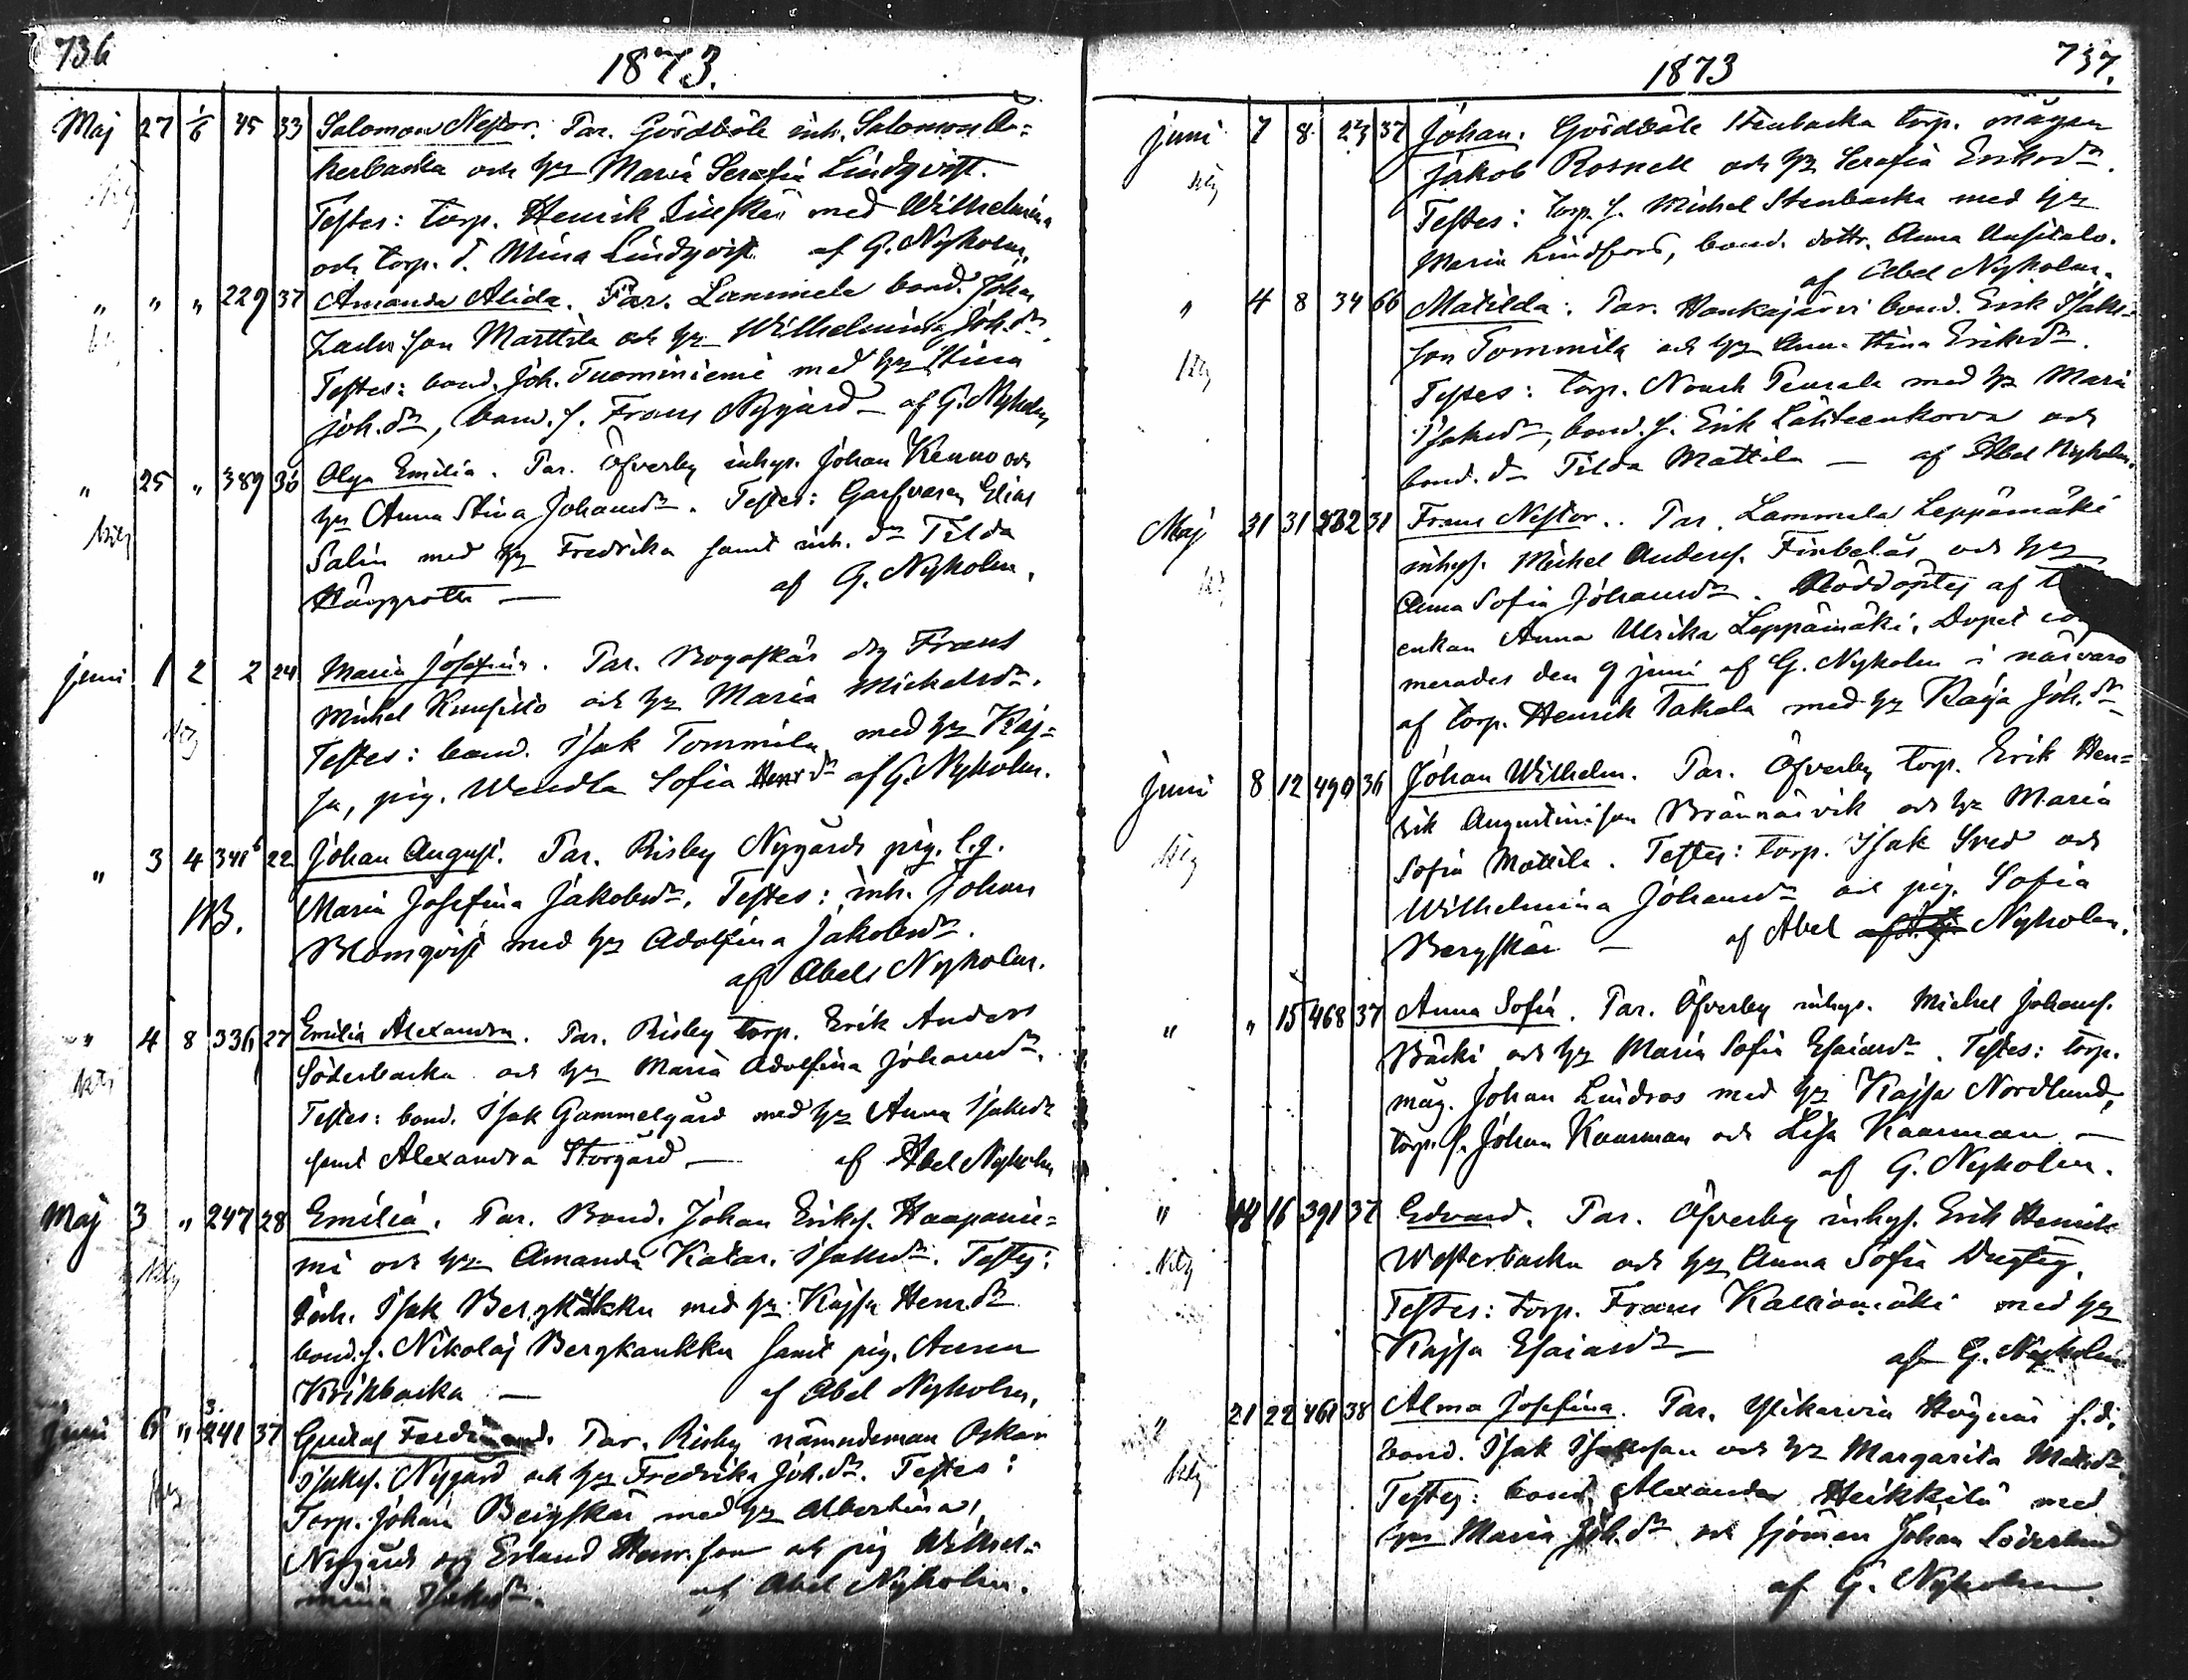 736
1873.
Maj 27 1/6 45 33 Salomon Nestor. Par. Gårdböle inh. Salomon Å=
kerbacka och h:u Maria Serafia Lindqvist.
Testes: torp. Henrik med Wilhelmina
och torp. d. Mina Lindqvist af G. Nyholm.
" " " 229 37 Amanda Alida. Par. Lammela bond. Johan
Zach:son Marttila och h:u Wilhelmina Joh.dr
Testes: bond. Joh. Tuominiemi med h:u Stina
Joh.dr, bond. s. Frans Nygård — af G. Nyholm
" 25 " 389 36 Olga Emilia. Par. Öfverby inhys. Johan Kenno och
h:u Anna Stina Johansdr. Testes: Garfvaren Elias
Salin med h:u Fredrika samt inh. dr Tilda
Häggroth — af G. Nyholm.
Juni 1 2 2 24 Maria Josefina. Par. Bogaskär dg Frans
Michel Kuusisto och h:u Maria Michelsdr.
Testes: bond. Isak Tommila med h:u Kaj=
sa, pig. Wendla Sofia Henrdr af G. Nyholm.
" 3 4 341 22 Johan August. Par. Risby Nygårds pig. l.g.
NB. Maria Josefina Jakobsdr. Testes: inh. Johan
Blomqvist med h:u Adolfina Jakobsdr.
af Abel Nyholm.
" 4 8 336 27 Emilia Alexandra. Par. Risby torp. Erik Anders
Söderbacka och h:u Maria Adolfina Johansdr.
Testes: bond. Isak Gammelgård med h:u Anna Isaksdr
samt Alexandra Storgård — af Abel Nyholm
Maj 3 " 247 28 Emilia. Par. Bond. Johan Eriks. Haapanie=
mi och h:u Amanda Katar. Isaksdr. Testes:
inh. Isak Bergkaukku med h:u Kajsa Henrdr
bond.s. Nikolaj Bergkaukku samt pig. Anna
Krikbacka — af Abel Nyholm.
Juni 6 " 241 37 Gustaf Ferdinand. Par. Risby nämndeman Oskar
Isaks. Nygård och h:u Fredrika Joh.dr. Testes:
Torp. Johan Bergskär med h:u Albertina,
Nygårds dg Erland Henr.son och pig Wilhel=
mina Isaksdr. af Abel Nyholm.
1873
737.
Juni 7 8 223 37 Johan. Gårdböle Stenbacka torp. mågen
Jakob Rosnell och h:u Serafia Eriksdr.
Testes: torp. s. Michel Stenbacka med h:u
Maria Lindfors, bond. dottr. Anna Uusitalo.
af Abel Nyholm.
" 4 8 34 66 Matilda. Par. Honkajärvi bond. Erik Isaks=
son Tommila och h:u Anna Stina Eriksdr.
Testes: torp. Noach Peurala med h:u Maria
Isaksdr, bond. s. Erik Lähteenkorva och
bond. dr Tilda Mattila — af Abel Nyholm.
Maj 31 31 232 31 Frans Nestor. Par. Lammela Leppämäki
inhys. Michel Anders. Finbelås och h:u
Anna Sofia Johansdr. Nöddöptes af
enkan Anna Ulrika Leppämäki. Dopet
merades den 9 juni af G. Nyholm i närvaro
af torp. Henrik Takala med h:u Kajsa Joh.dr
Juni 8 12 490 36 Johan Wilhelm. Par. Öfverby torp. Erik Hen=
rik Augustinison Brännärvik och h:u Maria
Sofia Mattila. Testes: torp. Isak Sved och
Wilhelmina Johansdr och pig. Sofia
Bergskär — af Abel Nyholm.
" " 15 468 37 Anna Sofia. Par. Öfverby inhys. Michel Johans.
Bäcki och h:u Maria Sofia Esaiasdr. Testes: torp.
måg. Johan Lindros med h:u Kajsa Nordlund,
torp. s. Johan Kaarman och Lisa Kaarman —
af G. Nyholm.
" 18 16 391 37 Edvard. Par. Öfverby inhys. Erik Henrik
Westerbacka och h:u Anna Sofia Dugtig.
Testes: torp. Frans Kalliomäki med h:u
Kajsa Esaiasdr — af G. Nyholm
" 21 22 461 38 Alma Josefina. Par. Ylikarvia Högnäs f.d.
bond. Isak Isaksson och h:u Margarita Matsdr.
Testes: bond. Alexander Heikkilä med
h:u Maria Joh.dr och sjöman Johan Söderlund
af G. Nyholm.